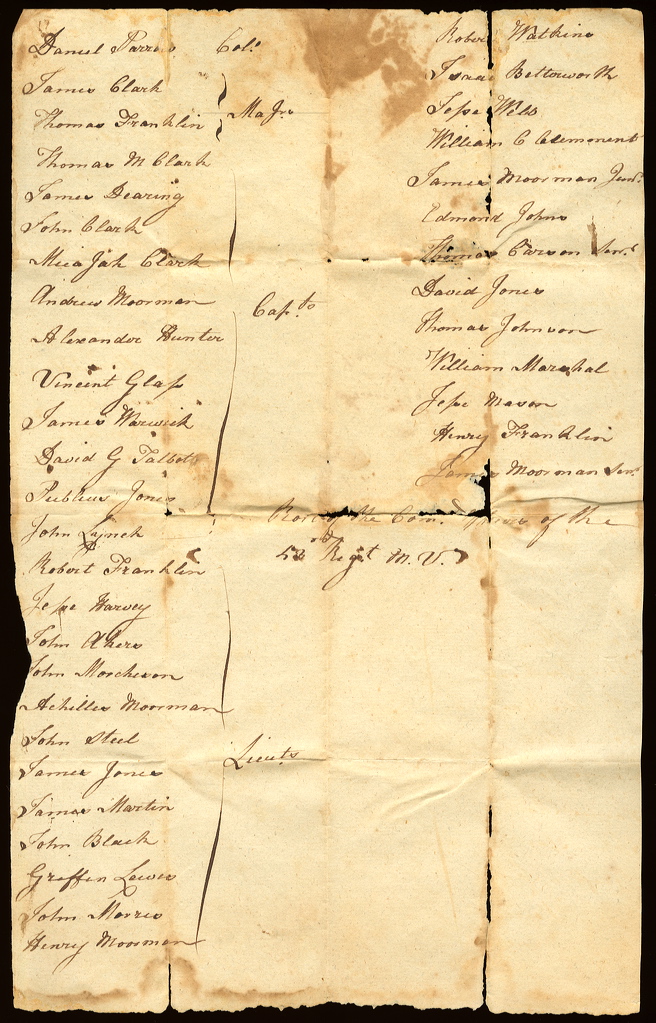 Daniel Parrow Colo.
James Clark
Thomas Franklin Majrs
Thomas M Clark
James Dearing
John Clark
Micajah Clark
Andrew Moorman Capts
Alexander Hunter
Vincent Glass
James Warwick
David G Talbott
Publius Jones
John Lynch
Robert Franklin
Jesse Harvey
John Akers
John Morcheson
Achilles Moorman
John Steel
James Jones Lieuts
James Martin
John Black
Griffin Lewis
John Morris
Henry Moorman
Robert Watkins
Isaac Betterworth
Jesse Webb
William C Clemonent
James Moorman Junr.
Edmond Johns
Thomas Carson Senr.
David Jones
Thomas Johnson
William Marshal
Jesse Mason
Henry Franklin
James Moorman Senr.
of the Com. of the
53rd Regt M. V.